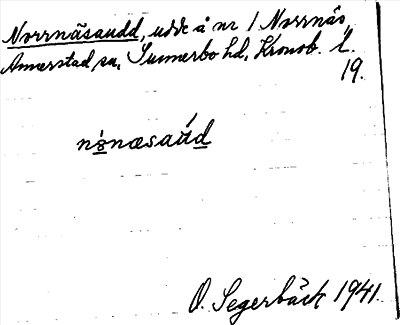 Norrnäsaudd, udde å nr 1 Norrnäs,
Annerstad sn, Sunnerbo hd, Kronob. l.
19.
nȯnæsaúd
O. Segerbäck 1941.